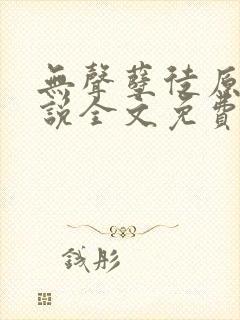 無聲孽徒原
說全文免費
錢彤